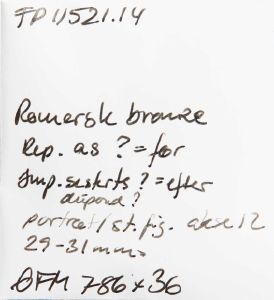 FP 11521.14
Romersk bronze
Rep. as ? = før
Imp. sesterts ? = efter
dupond ?
portræt / st. fig. akse 12
29-31 mm.
ØFM 786 x 36